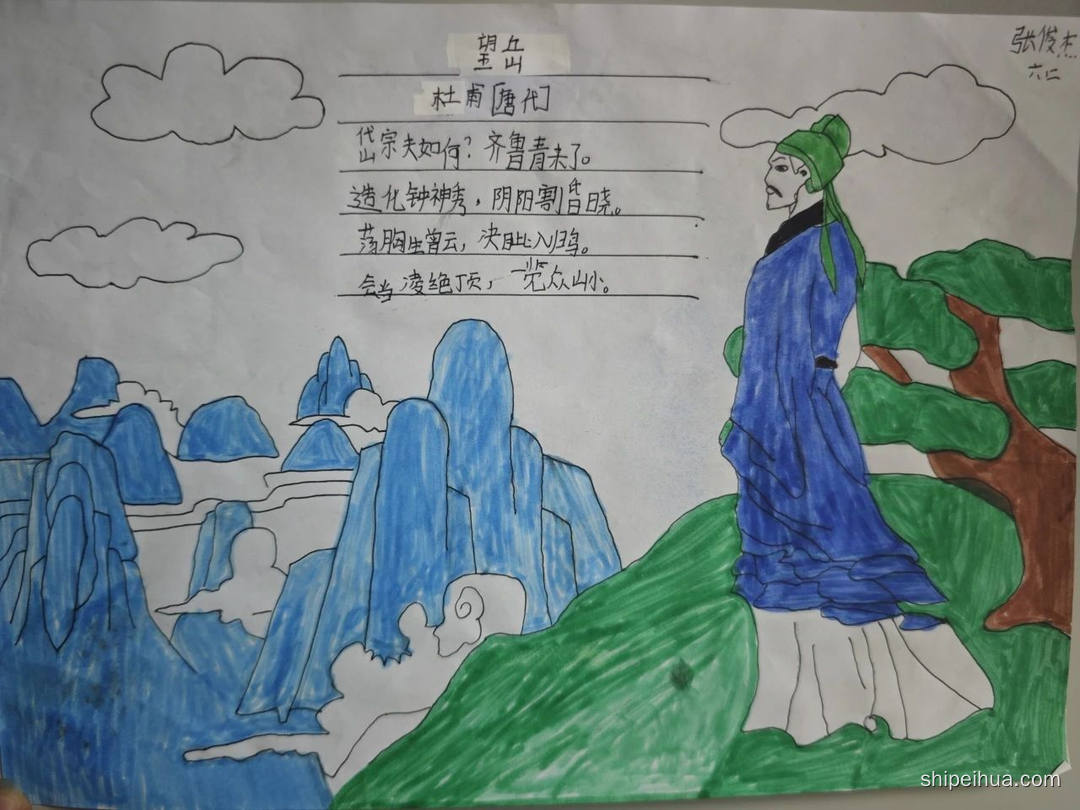 望岳
杜甫[唐代]
岱宗夫如何？齐鲁青未了。
造化钟神秀，阴阳割昏晓。
荡胸生曾云，决眦入归鸟。
会当凌绝顶，一览众山小。
张俊杰
六二
shipeihua.com